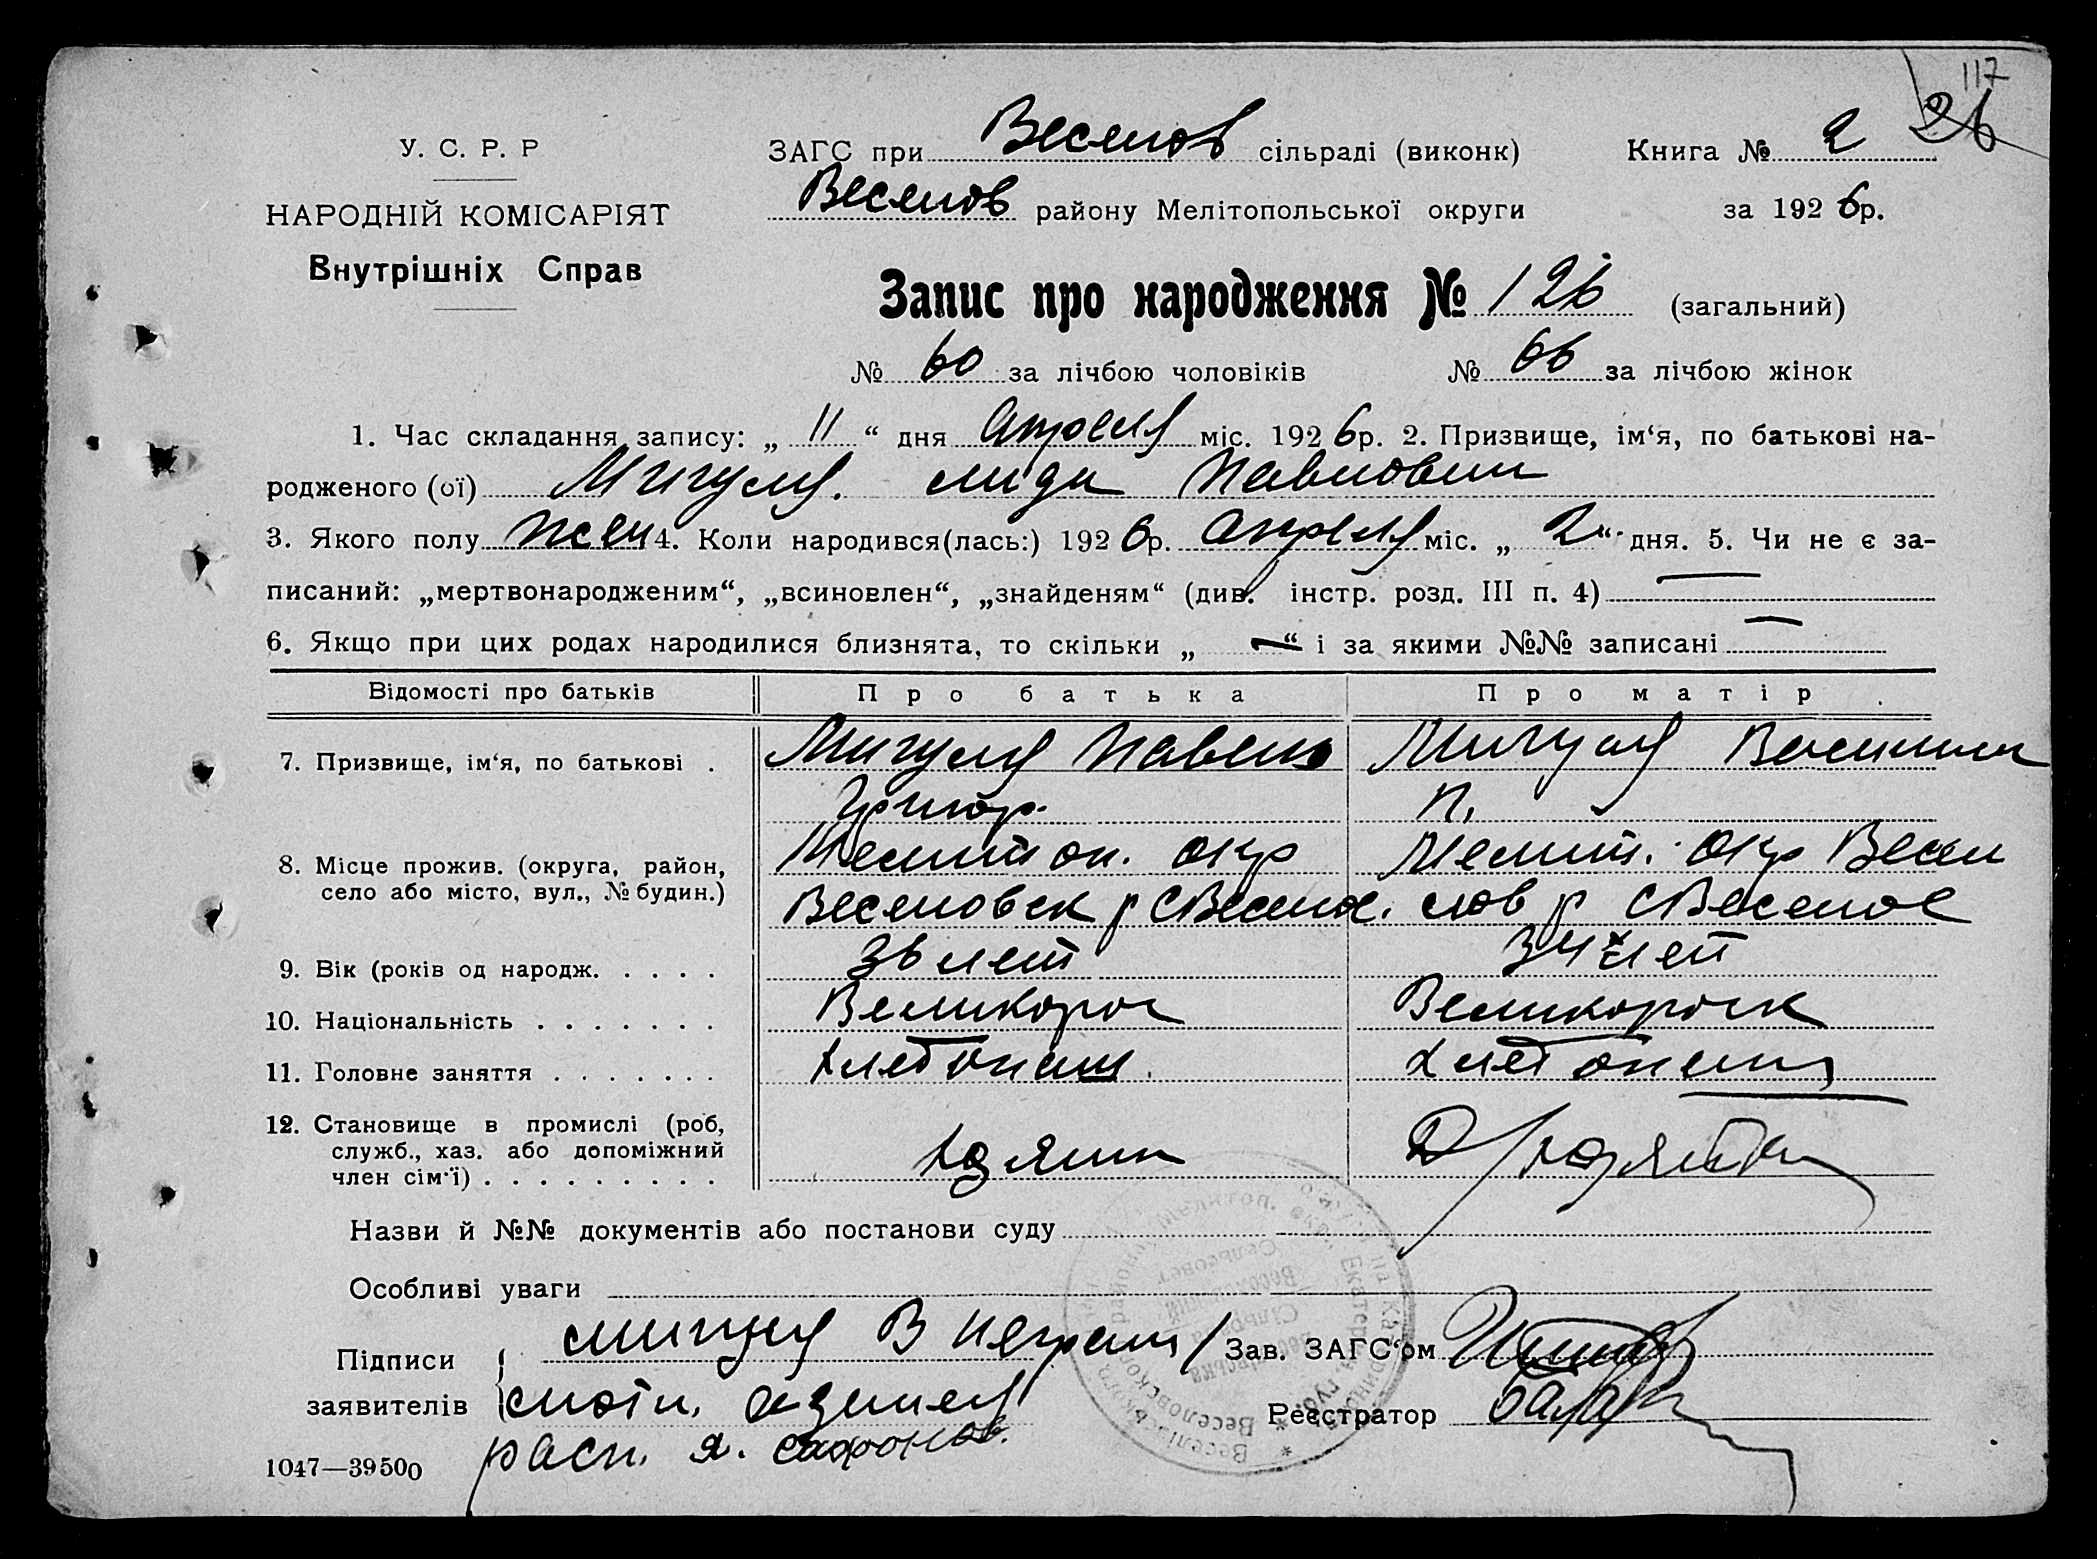 117
26
У. С. Р. Р
НАРОДНІЙ КОМІСАРІЯТ
Внутрішніх Справ
ЗАГС при Веселов сільраді (виконк) Книга № 2
Веселов району Мелітопольської округи за 1926р.
Запис про народження № 126 (загальний)
№ 60 за лічбою чоловіків № 66 за лічбою жінок
1. Час складання запису: „ 11 “ дня Апреля міс. 1926р. 2. Призвище, ім‘я, по батькові на-
родженого (ої) Мигуля. Лиди Павловн
3. Якого полу жен 4. Коли народився(лась:) 1926р. Апреля міс. „ 2 “ дня. 5. Чи не є за-
писаний: „мертвонародженим“, „всиновлен“, „знайденям“ (див. інстр. розд. III п. 4) —
6. Якщо при цих родах народилися близнята, то скільки „ — “ і за якими №№ записані —
Відомості про батьків Про батька Про матір
7. Призвище, ім‘я, по батькові . Мигуля Павел Мигуля
Григор. П.
8. Місце прожив. (округа, район, Мелитоп. окр Мелит. окр Весе
село або місто, вул., № будин.) Веселовск р С Веселое. лов р С Веселое
9. Вік (років од народж. . . . . 36 лет 34 лет
10. Національність . . . . . . . Великорос Великороск
11. Головне заняття . . . . . . . хлебопаш. хлебопаш
12. Становище в промислі (роб,
служб., хаз. або допоміжний хозяин Д/хозяйки
член сім‘ї) . . . . . . . . .
Назви й №№ документів або постанови суду
Особливі уваги
Підписи Мигуля В неграм/ Зав. ЗАГС‘ом
заявителів Реєстратор
расп. Я. Сафонов.
1047—39500